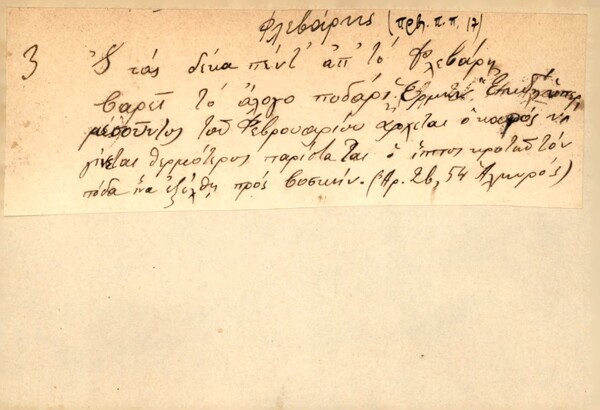 Φλεβάρης (πρβ. π.π. 17)
3 Σ τάς δέκα πέντ' ἀπ' τό Φλεβάρη
βαρεῖ τό ἄλογο ποδάρι. Ἑρμην. Ἐπειδή
μεσοῦντος τοῦ Φεβρουαρίου ἄρχεται ὁ καιρός νά
γίνεται θερμότερος παρίσταται ὁ ἵππος κροτῶν τόν
πόδα ἵνα ἐξέλθῃ πρός βοσκήν. (Ἀρ. 26, 54 Ἁλμυρός)